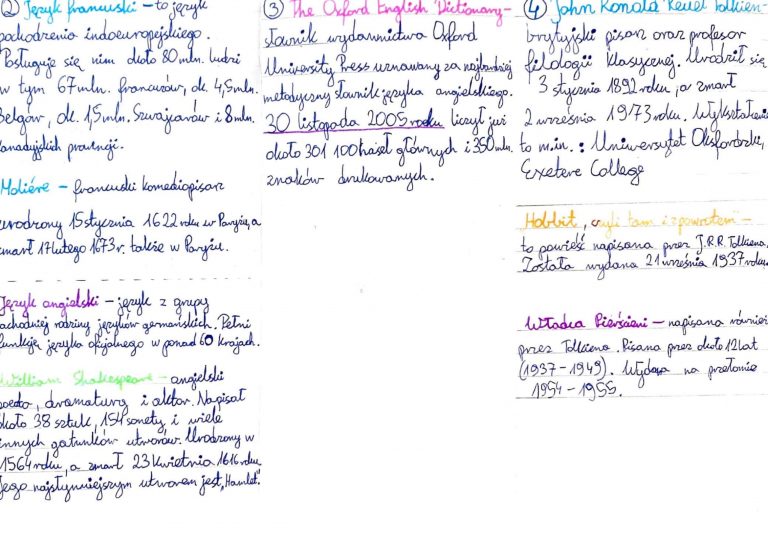 ② Język francuski – to język
pochodzenia indoeuropejskiego.
Posługuje się nim około 80 mln. ludzi
w tym 67 mln. francuzów, ok. 4,5 mln.
Belgów, ok. 1,5 mln. Szwajcarów i 8 mln.
kanadyjskich prowincji.
Moliére – francuski komediopisarz
urodzony 15 stycznia 1622 roku w Paryżu, a
zmarł 17 lutego 1673 r. także w Paryżu.
Język angielski – język z grupy
zachodniej rodziny języków germańskich. Pełni
funkcję języka oficjalnego w ponad 60 krajach.
William Shakespeare – angielski
poeta, dramaturg i aktor. Napisał
około 38 sztuk, 154 sonety i wiele
innych gatunków utworów. Urodzony w
1564 roku, a zmarł 23 kwietnia 1616 roku.
Jego najsłynniejszym utworem jest „Hamlet".
③ The Oxford English Dictionary –
słownik wydawnictwa Oxford
University Press uznawany za najbardziej
metodyczny słownik języka angielskiego.
30 listopada 2005 roku liczył już
około 301 100 haseł głównych i 350 mln.
znaków drukowanych.
④ John Ronald Reuel Tolkien –
brytyjski pisarz oraz profesor
filologii klasycznej. Urodził się
3 stycznia 1892 roku, a zmarł
2 września 1973 roku. Wykształcenie
to m.in.: Uniwersytet Oksfordzki,
Exetere College
Hobbit, czyli tam i z powrotem –
to powieść napisana przez J.R.R. Tolkiena.
Została wydana 21 września 1937 roku.
Władca Pierścieni – napisana również
przez Tolkiena. Pisana przez około 12 lat
(1937 – 1949). Wydana na przełomie
1954 – 1955.